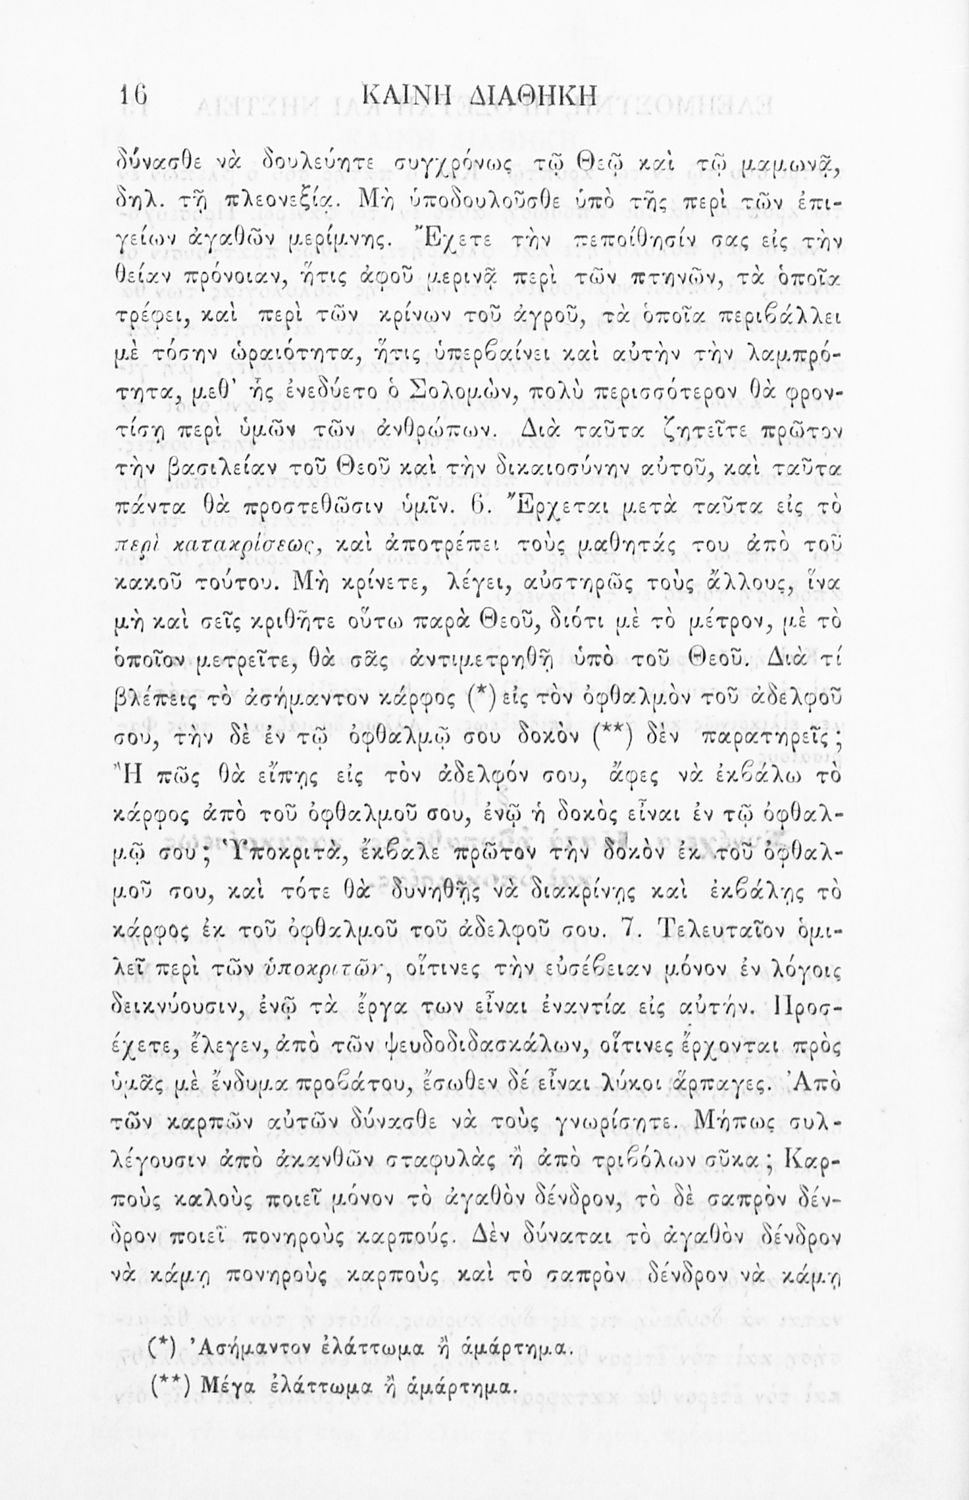 16 ΚΑΙΝΗ ΔΙΑΘΗΚΗ
δύνασθε νὰ δουλεύητε συγχρόνως τῷ Θεῷ καὶ τῷ μαμωνᾷ,
δηλ. τῇ πλεονεξίᾳ. Μὴ ὑποδουλοῦσθε ὑπὸ τῆς περὶ τῶν ἐπι-
γείων ἀγαθῶν μερίμνης. Ἔχετε τὴν πεποίθησίν σας εἰς τὴν
θείαν πρόνοιαν, ἥτις ἀφοῦ μερινᾷ περὶ τῶν πτηνῶν, τὰ ὁποῖα
τρέφει, καὶ περὶ τῶν κρίνων τοῦ ἀγροῦ, τὰ ὁποῖα περιβάλλει
μὲ τόσην ὡραιότητα, ἥτις ὑπερβαίνει καὶ αὐτὴν τὴν λαμπρό-
τητα, μεθ' ἧς ἐνεδύετο ὁ Σολομὼν, πολὺ περισσότερον θὰ φρον-
τίσῃ περὶ ὑμῶν τῶν ἀνθρώπων. Διὰ ταῦτα ζητεῖτε πρῶτον
τὴν βασιλείαν τοῦ Θεοῦ καὶ τὴν δικαιοσύνην αὐτοῦ, καὶ ταῦτα
πάντα θὰ προστεθῶσιν ὑμῖν. 6. Ἔρχεται μετὰ ταῦτα εἰς τὸ
περὶ κατακρίσεως, καὶ ἀποτρέπει τοὺς μαθητάς του ἀπὸ τοῦ
κακοῦ τούτου. Μὴ κρίνετε, λέγει, αὐστηρῶς τοὺς ἄλλους, ἵνα
μὴ καὶ σεῖς κριθῆτε οὕτω παρὰ Θεοῦ, διότι μὲ τὸ μέτρον, μὲ τὸ
ὁποῖον μετρεῖτε, θὰ σᾶς ἀντιμετρηθῇ ὑπὸ τοῦ Θεοῦ. Διὰ τί
βλέπεις τὸ ἀσήμαντον κάρφος (*) εἰς τὸν ὀφθαλμὸν τοῦ ἀδελφοῦ
σου, τὴν δὲ ἐν τῷ ὀφθαλμῷ σου δοκὸν (**) δὲν παρατηρεῖς;
Ἢ πῶς θὰ εἴπῃς εἰς τὸν ἀδελφόν σου, ἄφες νὰ ἐκβάλω τὸ
κάρφος ἀπὸ τοῦ ὀφθαλμοῦ σου, ἐνῷ ἡ δοκὸς εἶναι ἐν τῷ ὀφθαλ-
μῷ σου; Ὑποκριτὰ, ἔκβαλε πρῶτον τὴν δοκὸν ἐκ τοῦ ὀφθαλ-
μοῦ σου, καὶ τότε θὰ δυνηθῇς νὰ διακρίνῃς καὶ ἐκβάλῃς τὸ
κάρφος ἐκ τοῦ ὀφθαλμοῦ τοῦ ἀδελφοῦ σου. 7. Τελευταῖον ὁμι-
λεῖ περὶ τῶν ὑποκριτῶν, οἵτινες τὴν εὐσέβειαν μόνον ἐν λόγοις
δεικνύουσιν, ἐνῷ τὰ ἔργα των εἶναι ἐναντία εἰς αὐτήν. Προσ-
έχετε, ἔλεγεν, ἀπὸ τῶν ψευδοδιδασκάλων, οἵτινες ἔρχονται πρὸς
ὑμᾶς μὲ ἔνδυμα προβάτου, ἔσωθεν δέ εἶναι λύκοι ἅρπαγες. Ἀπὸ
τῶν καρπῶν αὐτῶν δύνασθε νὰ τοὺς γνωρίσητε. Μήπως συλ-
λέγουσιν ἀπὸ ἀκανθῶν σταφυλὰς ἢ ἀπὸ τριβόλων σῦκα; Καρ-
ποὺς καλοὺς ποιεῖ μόνον τὸ ἀγαθὸν δένδρον, τὸ δὲ σαπρὸν δέν-
δρον ποιεῖ πονηροὺς καρπούς. Δὲν δύναται τὸ ἀγαθὸν δένδρον
νὰ κάμῃ πονηροὺς καρποὺς καὶ τὸ σαπρὸν δένδρον νὰ κάμῃ
(*) Ἀσήμαντον ἐλάττωμα ἢ ἁμάρτημα.
(**) Μέγα ἐλάττωμα ἢ ἁμάρτημα.